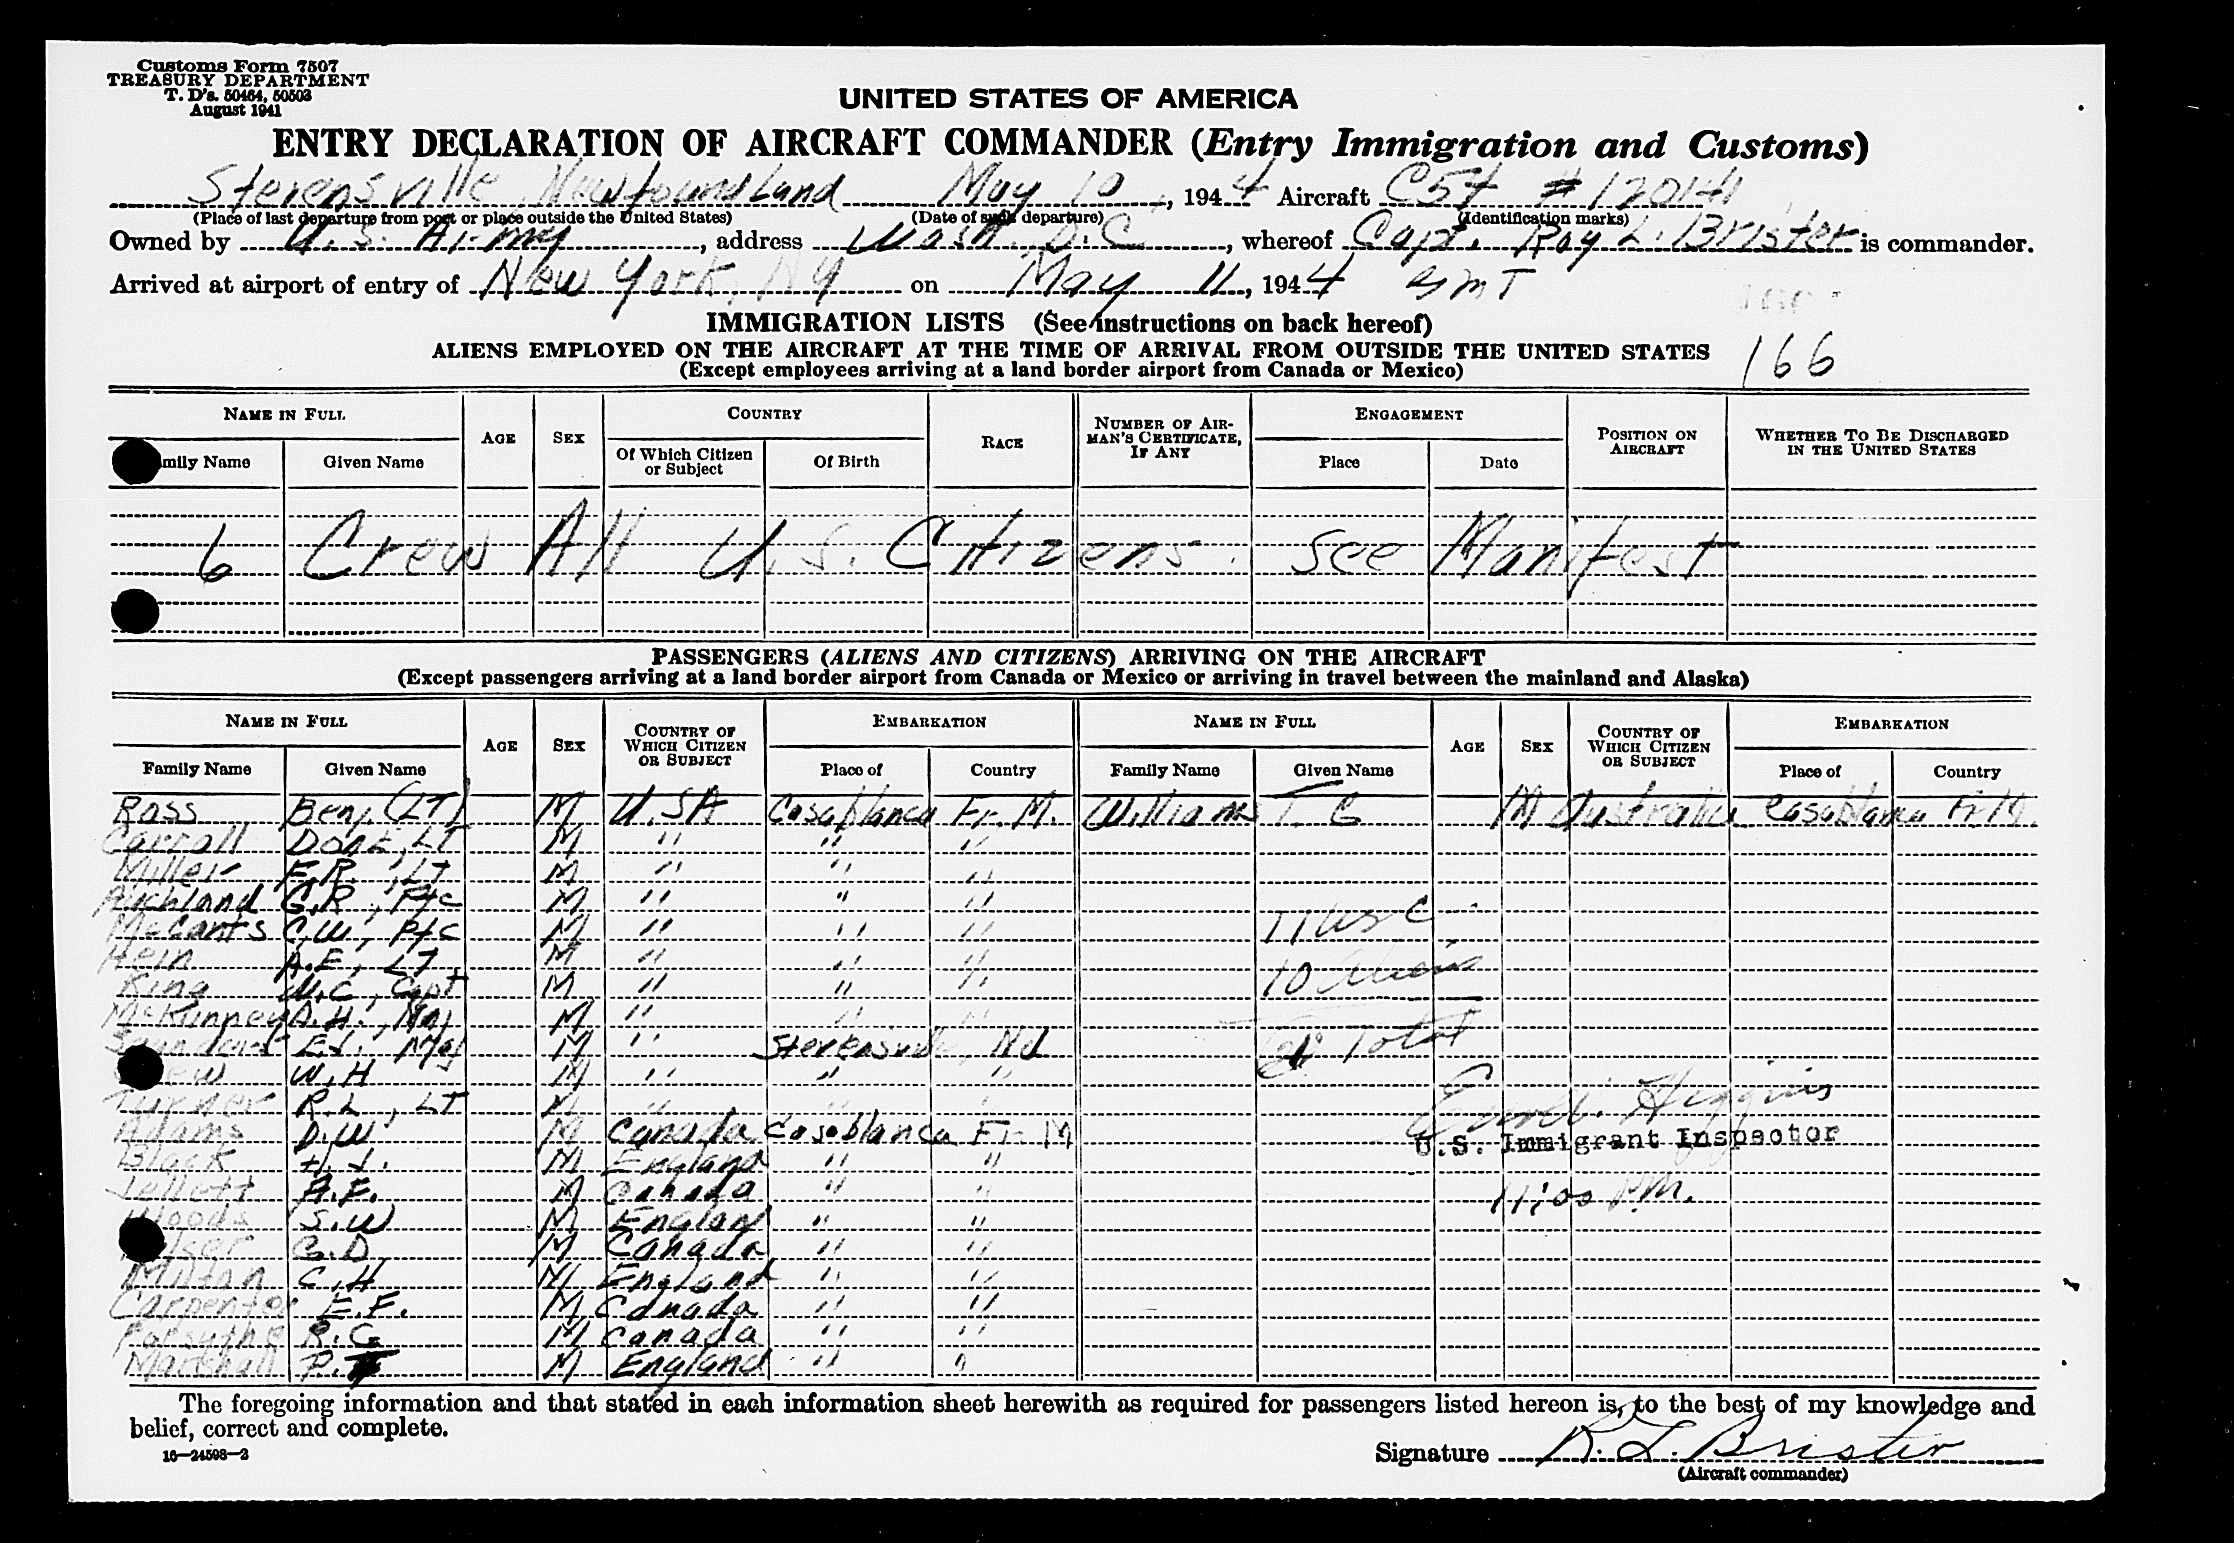 Customs Form 7507
TREASURY DEPARTMENT
T. D's. 50464, 50503
August 1941
UNITED STATES OF AMERICA
ENTRY DECLARATION OF AIRCRAFT COMMANDER (Entry Immigration and Customs)
Stevensville Newfoundland May 10, 1944 Aircraft C54 #
(Place of last departure from port or place outside the United States) (Date of such departure) (Identification marks)
Owned by U.S. Army, address Wash. D.C., whereof Capt. Roy L. Brister is commander.
Arrived at airport of entry of New York, NY on May 11, 1944 GMT
IMMIGRATION LISTS (See instructions on back hereof)
ALIENS EMPLOYED ON THE AIRCRAFT AT THE TIME OF ARRIVAL FROM OUTSIDE THE UNITED STATES 166
(Except employees arriving at a land border airport from Canada or Mexico)
NAME IN FULL AGE SEX COUNTRY RACE NUMBER OF AIRMAN'S CERTIFICATE, IF ANY ENGAGEMENT POSITION ON AIRCRAFT WHETHER TO BE DISCHARGED IN THE UNITED STATES
mily Name Given Name Of Which Citizen or Subject Of Birth Place Date
6 Crew All U.S. Citizens. See Manifest
PASSENGERS (ALIENS AND CITIZENS) ARRIVING ON THE AIRCRAFT
(Except passengers arriving at a land border airport from Canada or Mexico or arriving in travel between the mainland and Alaska)
NAME IN FULL AGE SEX COUNTRY OF WHICH CITIZEN OR SUBJECT EMBARKATION NAME IN FULL AGE SEX COUNTRY OF WHICH CITIZEN OR SUBJECT EMBARKATION
Family Name Given Name Place of Country Family Name Given Name Place of Country
Ross Benj. (LT) M U.SA Casablanca Fr. M. Williams T. G M Australia Casablanca Fr. M.
Carroll Don E, LT M " " "
Miller F.R., LT M " " "
Richland G.R, Pfc M " " "
McCants C.W, Pfc M " " " 11 US C
Hein A.E, LT M " " "
King W.C, Capt M " " " 10 Aliens
McKinney A.H., Maj M " " "
Saunders E.L. Maj M " Stevensville, Nd 21 Total
ew W.H M " " "
Turner R.L, LT M " " "
Adams D.W M Canada Casablanca Fr M
Black H.L. M England " "
Jellett A.F. M Canada " "
Woods S.W M England " "
G.D M Canada " "
Minton C.H M England " "
Carpenter E.F. M Canada " "
Forsythe R.G M Canada " "
Marshall P. M England " "
Higgins
U.S. Immigrant Inspector
11:00 P.M.
The foregoing information and that stated in each information sheet herewith as required for passengers listed hereon is, to the best of my knowledge and
belief, correct and complete.
16—24598—2
Signature R. L. Brister
(Aircraft commander)